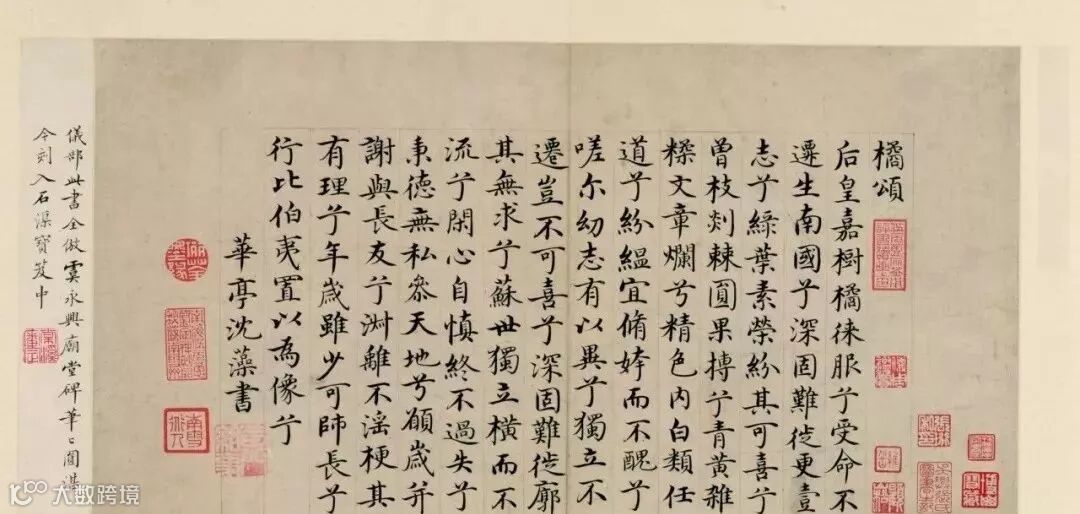 橘頌
后皇嘉樹橘徠服兮受命不
遷生南國兮深固難徙更壹
志兮綠葉素榮紛其可喜兮
曾枝剡棘圓果摶兮青黃雜
糅文章爛兮精色內白類任
道兮紛緼宜脩姱而不醜兮
嗟尔幼志有以異兮獨立不
遷豈不可喜兮深固難徙廓
其無求兮蘇世獨立橫而不
流兮閑心自慎終不過失兮
秉德無私參天地兮願歲并
謝與長友兮淑離不淫梗其
有理兮年歲雖少可師長兮
行比伯夷置以為像兮
華亭沈藻書
儀部此書全倣虞永興廟堂碑筆筆圓湛
今刻入石渠寶笈中
大数跨境